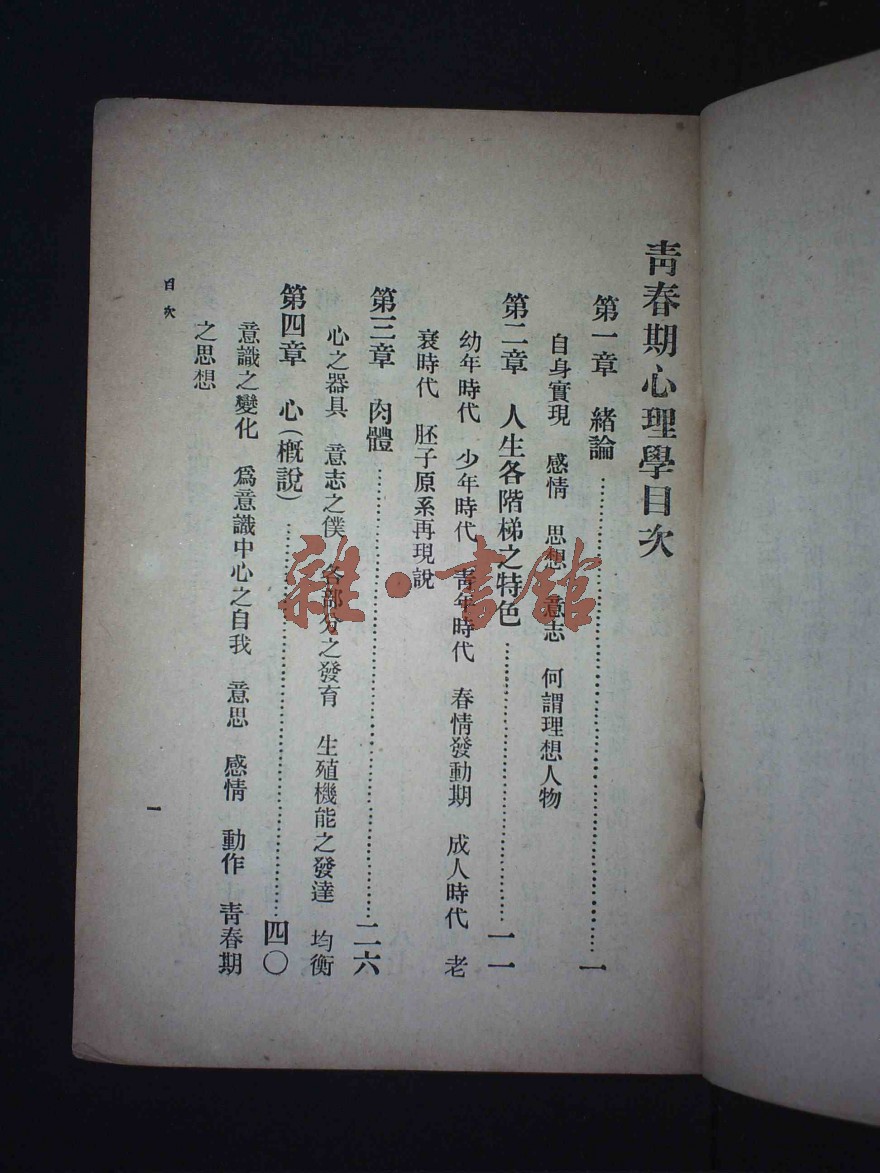 青春期心理學目次
第一章　緒論……一
自身實現　感情　思想　意志　何謂理想人物
第二章　人生各階梯之特色……一一
幼年時代　少年時代　青年時代　春情發動期　成人時代　老
衰時代　胚子原系再現說
第三章　肉體……二六
心之器具　意志之僕　各部分之發育　生殖機能之發達　均衡
第四章　心(概說)……四〇
意識之變化　爲意識中心之自我　意思　感情　動作　青春期
之思想
目次
一
雜·書館